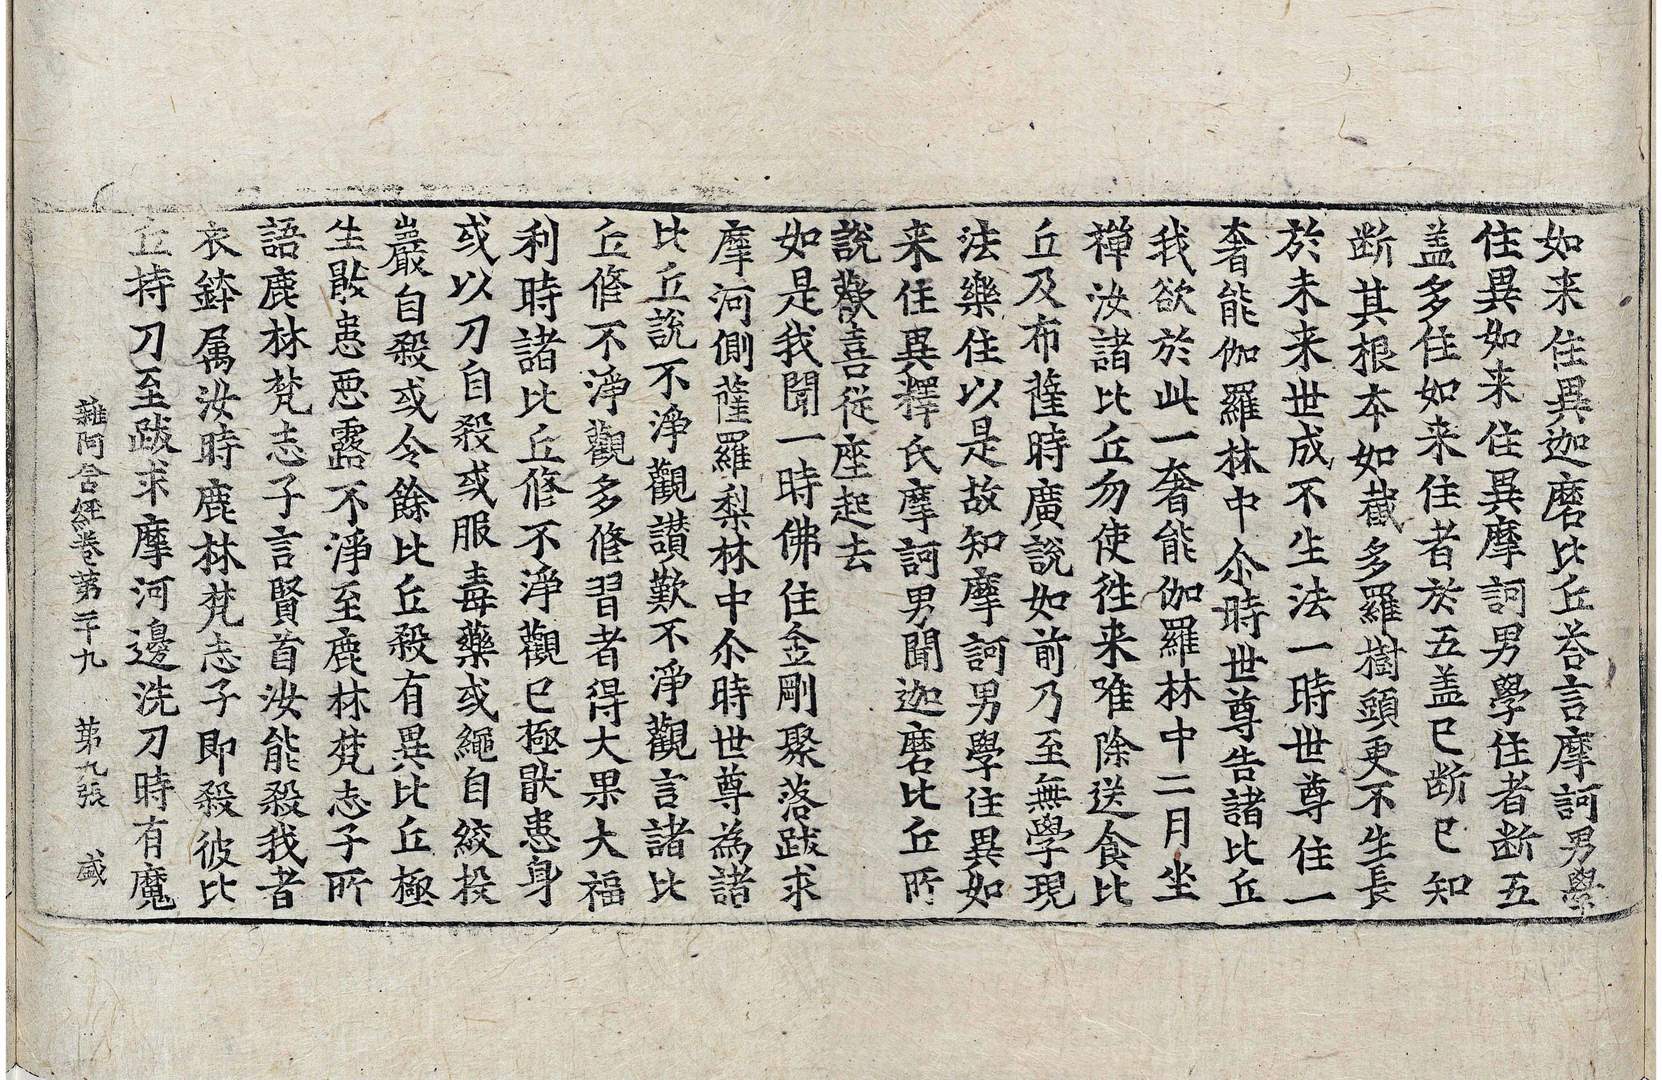 如来住異迦磨比丘荅言摩訶男學
住異如来住異摩訶男學住者断五
盖多住如来住者於五盖已断已知
断其根夲如截多羅樹頭更不生長
於未来世成不生法一時世尊住一
奢能伽羅林中尒時世尊告諸比丘
我欲於此一奢能伽羅林中二月坐
禪汝諸比丘勿使徃来唯除送食比
丘及布薩時廣說如前乃至無學現
法樂住以是故知摩訶男學住異如
来住異釋氏摩訶男聞迦磨比丘所
說歡喜從座起去
如是我聞一時佛住金剛聚落跋求
摩河側薩羅梨林中尒時世尊為諸
比丘說不淨觀讃歎不淨觀言諸比
丘修不淨觀多修習者得大果大福
利時諸比丘修不淨觀已極猒患身
或以刀自殺或服毒藥或繩自絞投
巖自殺或令餘比丘殺有異比丘極
生猒患惡露不淨至鹿林梵志子所
語鹿林梵志子言賢首汝能殺我者
衣鉢属汝時鹿林梵志子即殺彼比
丘持刀至跋求摩河邊洗刀時有魔
雜阿含經卷第二十九 第九張 盛